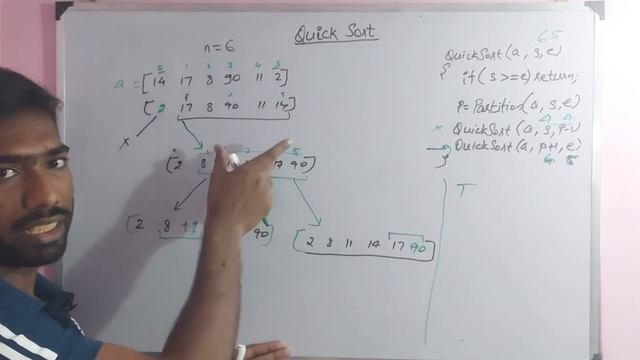 Quick Sort
n=6
0 1 2 3 4 5
a = [14 17 8 90 11 2]
[2 17 8 90 11 14]
x
[2 8 17 90]
[2 8 11 90]
[2 8 11 14 17 90]
65
QuickSort(a, s, e)
{ if(s>=e) return;
P=Partition(a, s, e)
x QuickSort(a, s, P-1)
→ QuickSort(a, P+1, e)
} 6 5
T